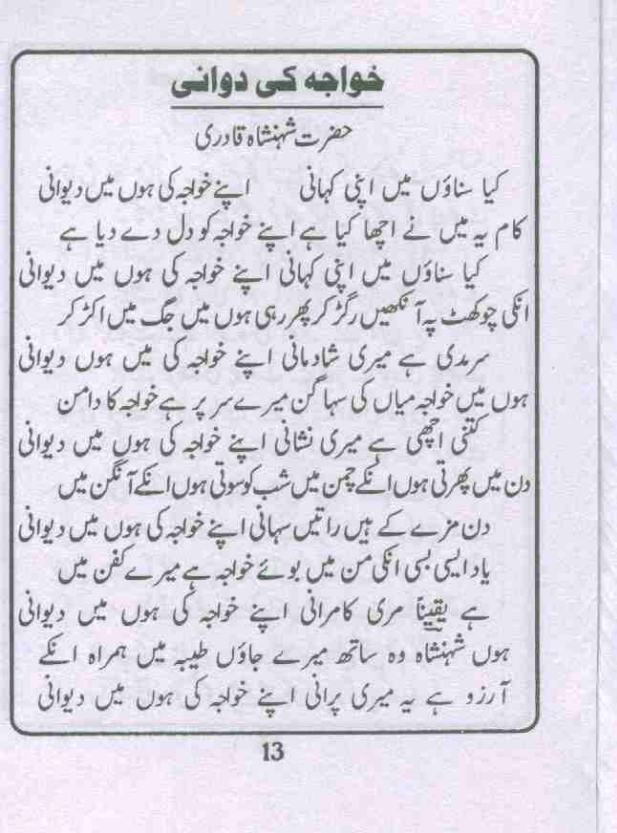 خواجہ کی دوانی
حضرت شہنشاہ قادری
کیا سناؤں میں اپنی کہانی اپنے خواجہ کی ہوں میں دیوانی
کام یہ میں نے اچھا کیا ہے اپنے خواجہ کو دل دے دیا ہے
کیا سناؤں میں اپنی کہانی اپنے خواجہ کی ہوں میں دیوانی
انکی چوکھٹ پہ آنکھیں رگڑ کر پھر رہی ہوں میں جگ میں اکڑ کر
سرمدی ہے میری شادمانی اپنے خواجہ کی میں ہوں دیوانی
ہوں میں خواجہ میاں کی سہاگن میرے سر پر ہے خواجہ کا دامن
کتنی اچھی ہے میری نشانی اپنے خواجہ کی ہوں میں دیوانی
دن میں پھرتی ہوں انکے چمن میں شب کو سوتی ہوں انکے آنگن میں
دن مزے کے ہیں راتیں سہانی اپنے خواجہ کی ہوں میں دیوانی
یاد ایسی بسی انکی من میں بوئے خواجہ ہے میرے کفن میں
ہے یقیناً مری کامرانی اپنے خواجہ کی ہوں میں دیوانی
ہوں شہنشاہ وہ ساتھ میرے جاؤں طیبہ میں ہمراہ انکے
آرزو ہے یہ میری پرانی اپنے خواجہ کی ہوں میں دیوانی
13